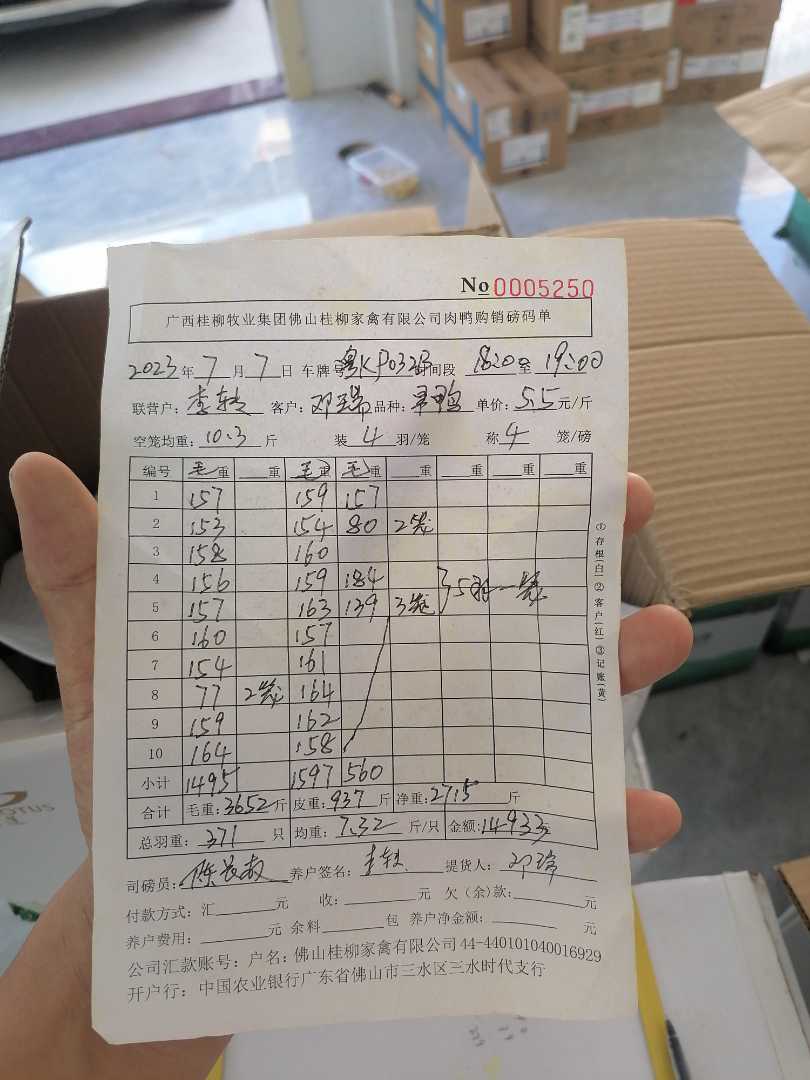 No 0005250
广西桂柳牧业集团佛山桂柳家禽有限公司肉鸭购销磅码单
2023年7月7日 车牌号 粤KP032 时间段 18:20至19:00
联营户: 李 客户: 邓瑞 品种: 鸭 单价: 5.5元/斤
空笼均重: 10.3斤 装4羽/笼 称4笼/磅
编号 毛重 重 毛重 毛重 重 重 重 重
1 157 159 157
2 153 154 80 2笼
3 158 160
4 156 159 184
5 157 163 139 3笼 5羽一笼
6 160 157
7 154 161
8 77 2笼 164
9 159 162
10 164 158
小计 1495 1597 560
合计 毛重: 3652斤 皮重: 937斤 净重: 2715斤
总羽重: 371只 均重: 7.32斤/只 金额: 14933元
司磅员: 陈 养户签名: 李 提货人: 邓瑞
付款方式: 汇 元 收: 元 欠(余)款: 元
养户费用: 元 余料 包 养户净金额: 元
公司汇款账号: 户名: 佛山桂柳家禽有限公司44-440101040016929
开户行: 中国农业银行广东省佛山市三水区三水时代支行
①存根(白)②客户(红)③记账(黄)